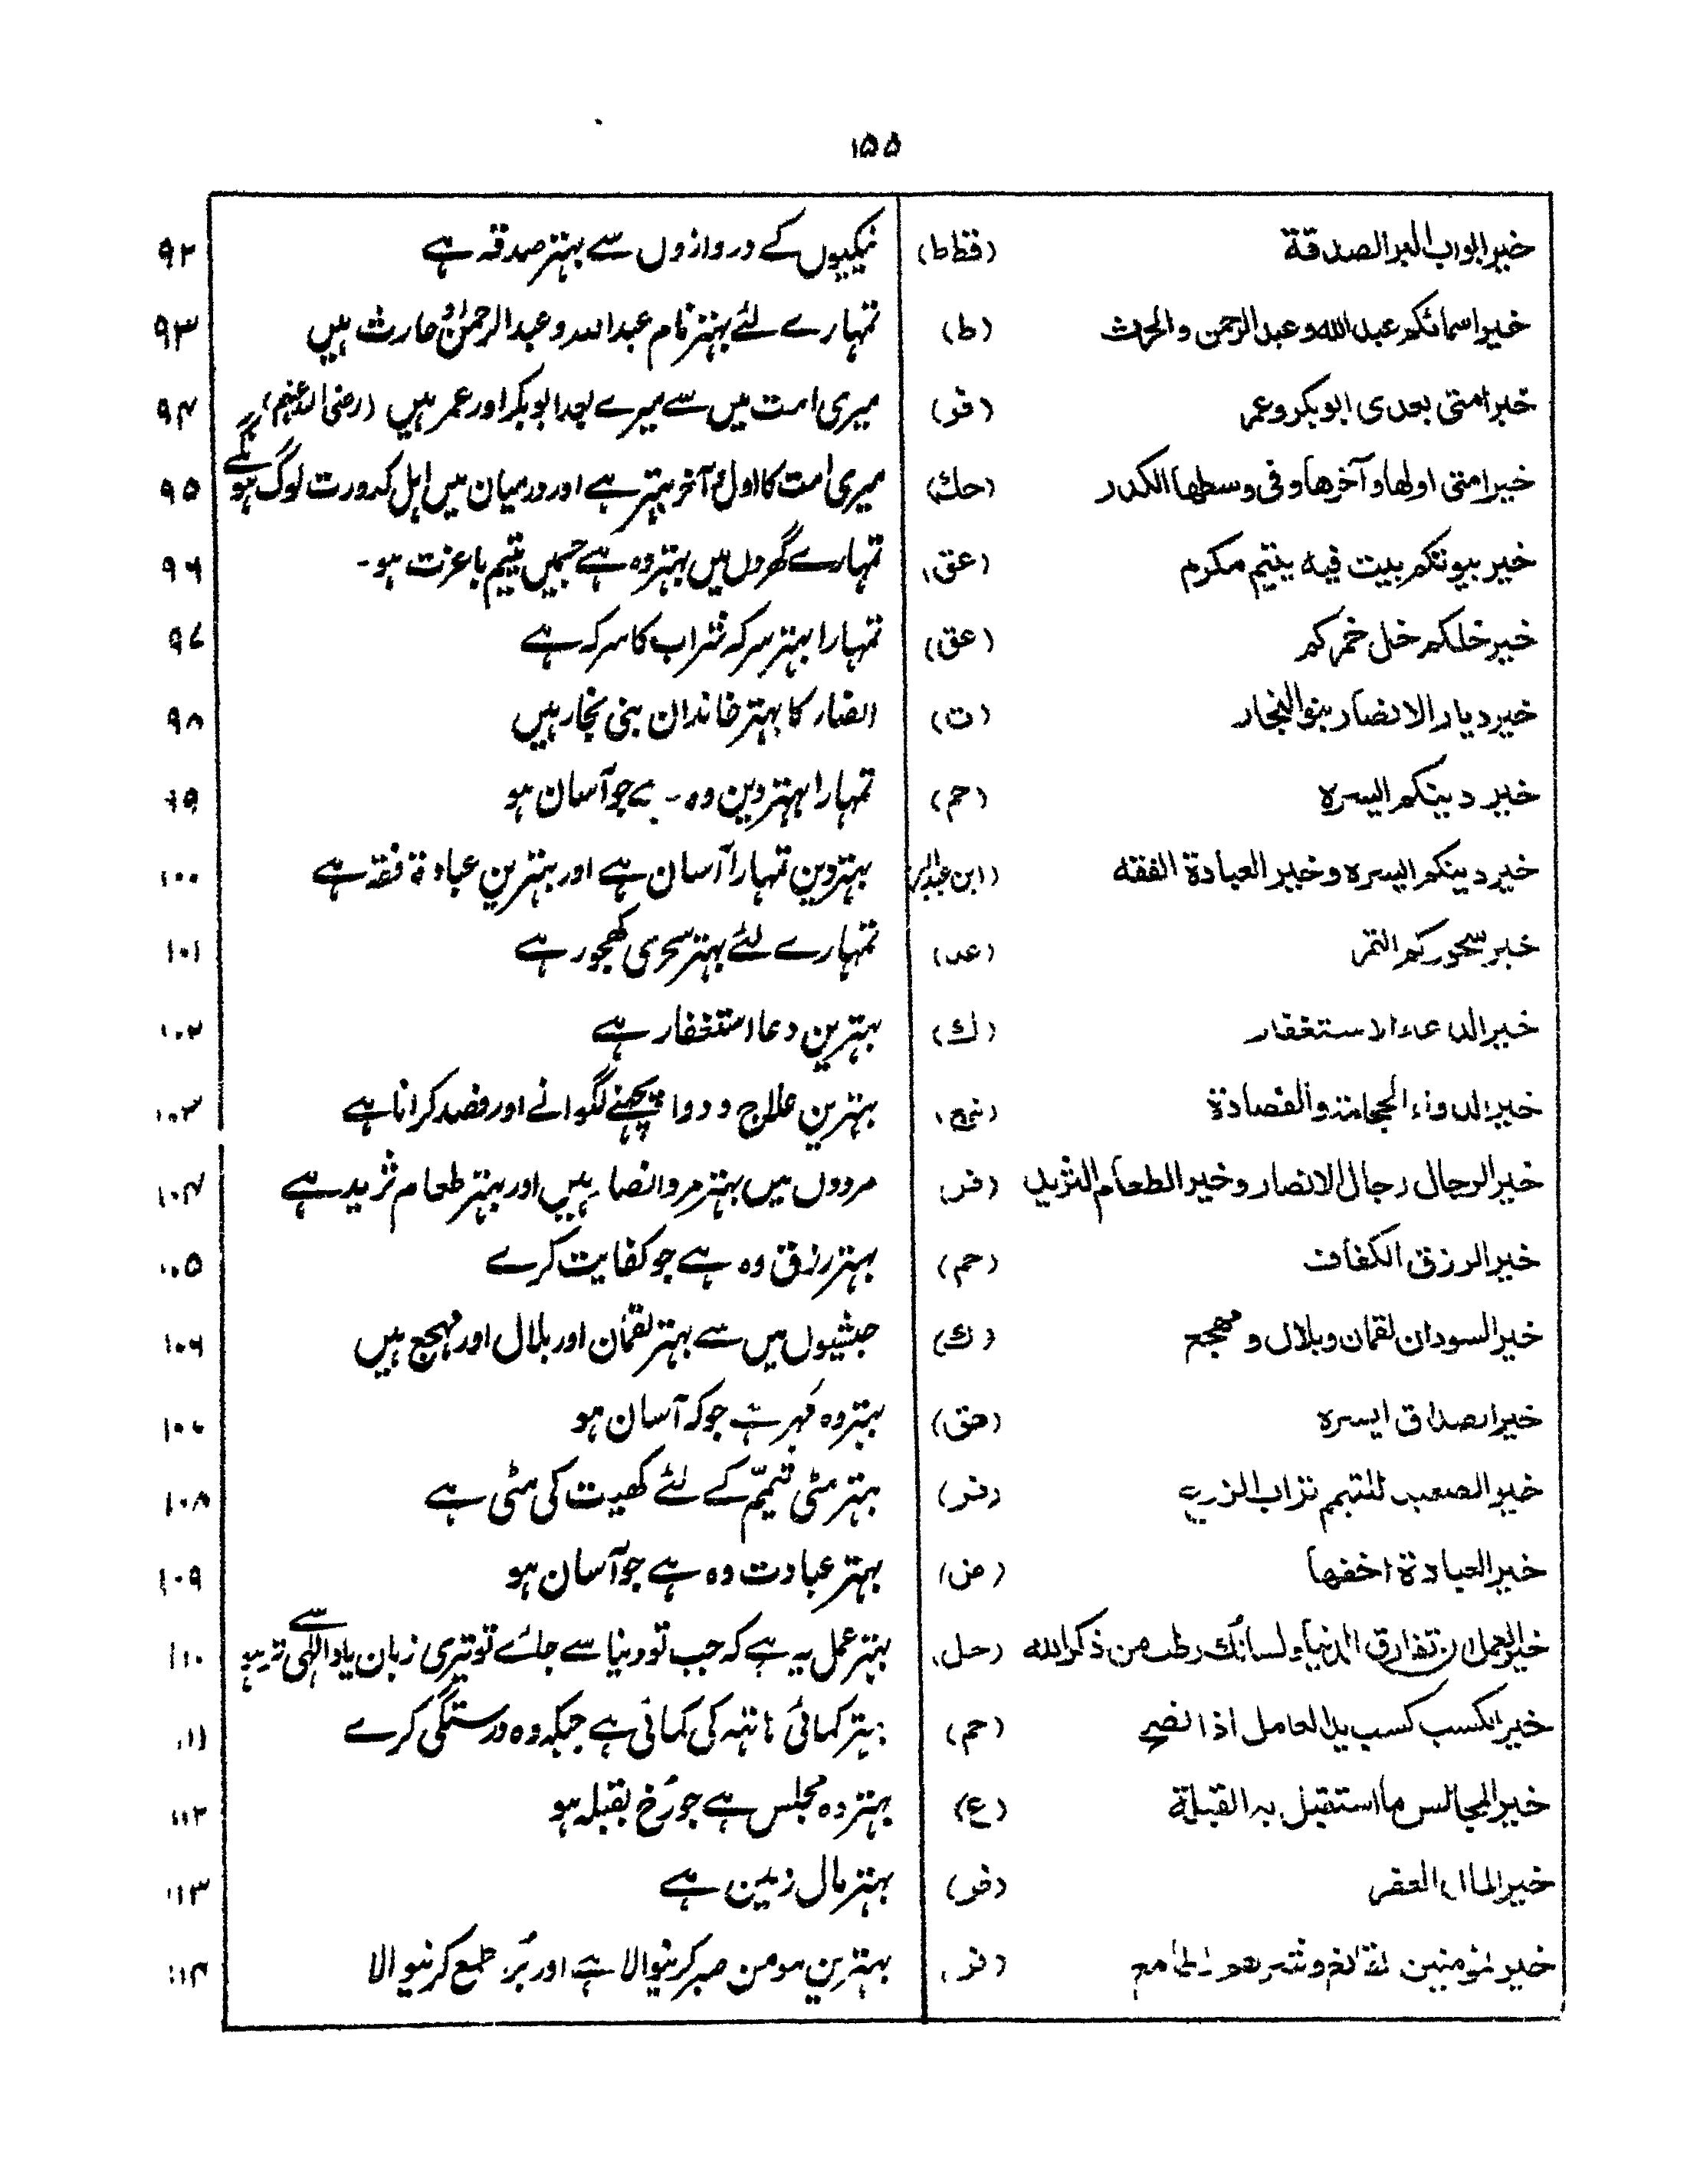 ۱۵۵
خیر ابواب البر الصدقة (قطط) نیکیوں کے دروازوں سے بہتر صدقہ ہے ۹۲
خیر اسمائکم عبد الله و عبد الرحمن والحرث (ط) تمہارے لئے بہتر نام عبداللہ و عبدالرحمٰن و حارث ہیں ۹۳
خیر امتی بعدی ابو بکر و عمر (فر) میری امت میں سے میرے بعد ابو بکر اور عمر ہیں (رضی اللہ عنہم) ۹۴
خیر امتی اولها و آخرها و فی وسطها الکدر (حك) میری امت کا اول و آخر بہتر ہے اور درمیان میں اہل کدورت لوگ ہونگے ۹۵
خیر بیوتکم بیت فیه یتیم مکرم (عق) تمہارے گھروں میں بہتر وہ ہے جسمیں یتیم باعزت ہو۔ ۹۶
خیر خلکم خل خمرکم (عق) تمہارا بہتر سرکہ شراب کا سرکہ ہے ۹۷
خیر دیار الانصار بنو النجار (ت) انصار کا بہتر خاندان بنی نجار ہیں ۹۸
خیر دینکم ایسره (حم) تمہارا بہتر دین وہ ہے جو آسان ہو ۹۹
خیر دینکم ایسره و خیر العبادة الفقه (ابن عبدالبر) بہتر دین تمہارا آسان ہے اور بہترین عبادة فقہ ہے ۱۰۰
خیر سحورکم التمر (عد) تمہارے لئے بہتر سحری کھجور ہے ۱۰۱
خیر الدعاء الاستغفار (ك) بہترین دعا استغفار ہے ۱۰۲
خیر الدواء الحجامة والفصادة بہترین علاج و دوا پچھنے لگوانے اور فصد کرانا ہے ۱۰۳
خیر الرجال رجال الانصار و خیر الطعام الثرید (فر) مردوں میں بہتر مرد انصار ہیں اور بہتر طعام ثرید ہے ۱۰۴
خیر الرزق الکفاف (حم) بہتر رزق وہ ہے جو کفایت کرے ۱۰۵
خیر السودان لقمان و بلال و مهجع (ك) حبشیوں میں سے بہتر لقمان اور بلال اور مہجع ہیں ۱۰۶
خیر الصداق ایسره (هق) بہتر وہ مہر ہے جو کہ آسان ہو ۱۰۷
خیر الصعید للتیمم تراب الزرع (فر) بہتر مٹی تیمّم کے لئے کھیت کی مٹی ہے ۱۰۸
خیر العیادة اخفها (ض) بہتر عبادت وہ ہے جو آسان ہو ۱۰۹
خیر العمل ان تفارق الدنیا و لسانك رطب من ذکر الله (حل) بہتر عمل یہ ہے کہ جب تو دنیا سے جائے تو تیری زبان یاد الٰہی سے تر ہو ۱۱۰
خیر الکسب کسب ید العامل اذا نصح (حم) بہتر کمائی ہاتھ کی کمائی ہے جبکہ وہ درستگی کرے ۱۱۱
خیر المجالس ما استقبل به القبلة (ع) بہتر وہ مجلس ہے جو رُخ بقبلہ ہو ۱۱۲
خیر المال العقر (فر) بہتر مال زمین ہے ۱۱۳
خیر المومنین القانع و شرهم الطامع (فر) بہترین مومن صبر کرنیوالا ہے اور بُرا طمع کرنیوالا ۱۱۴